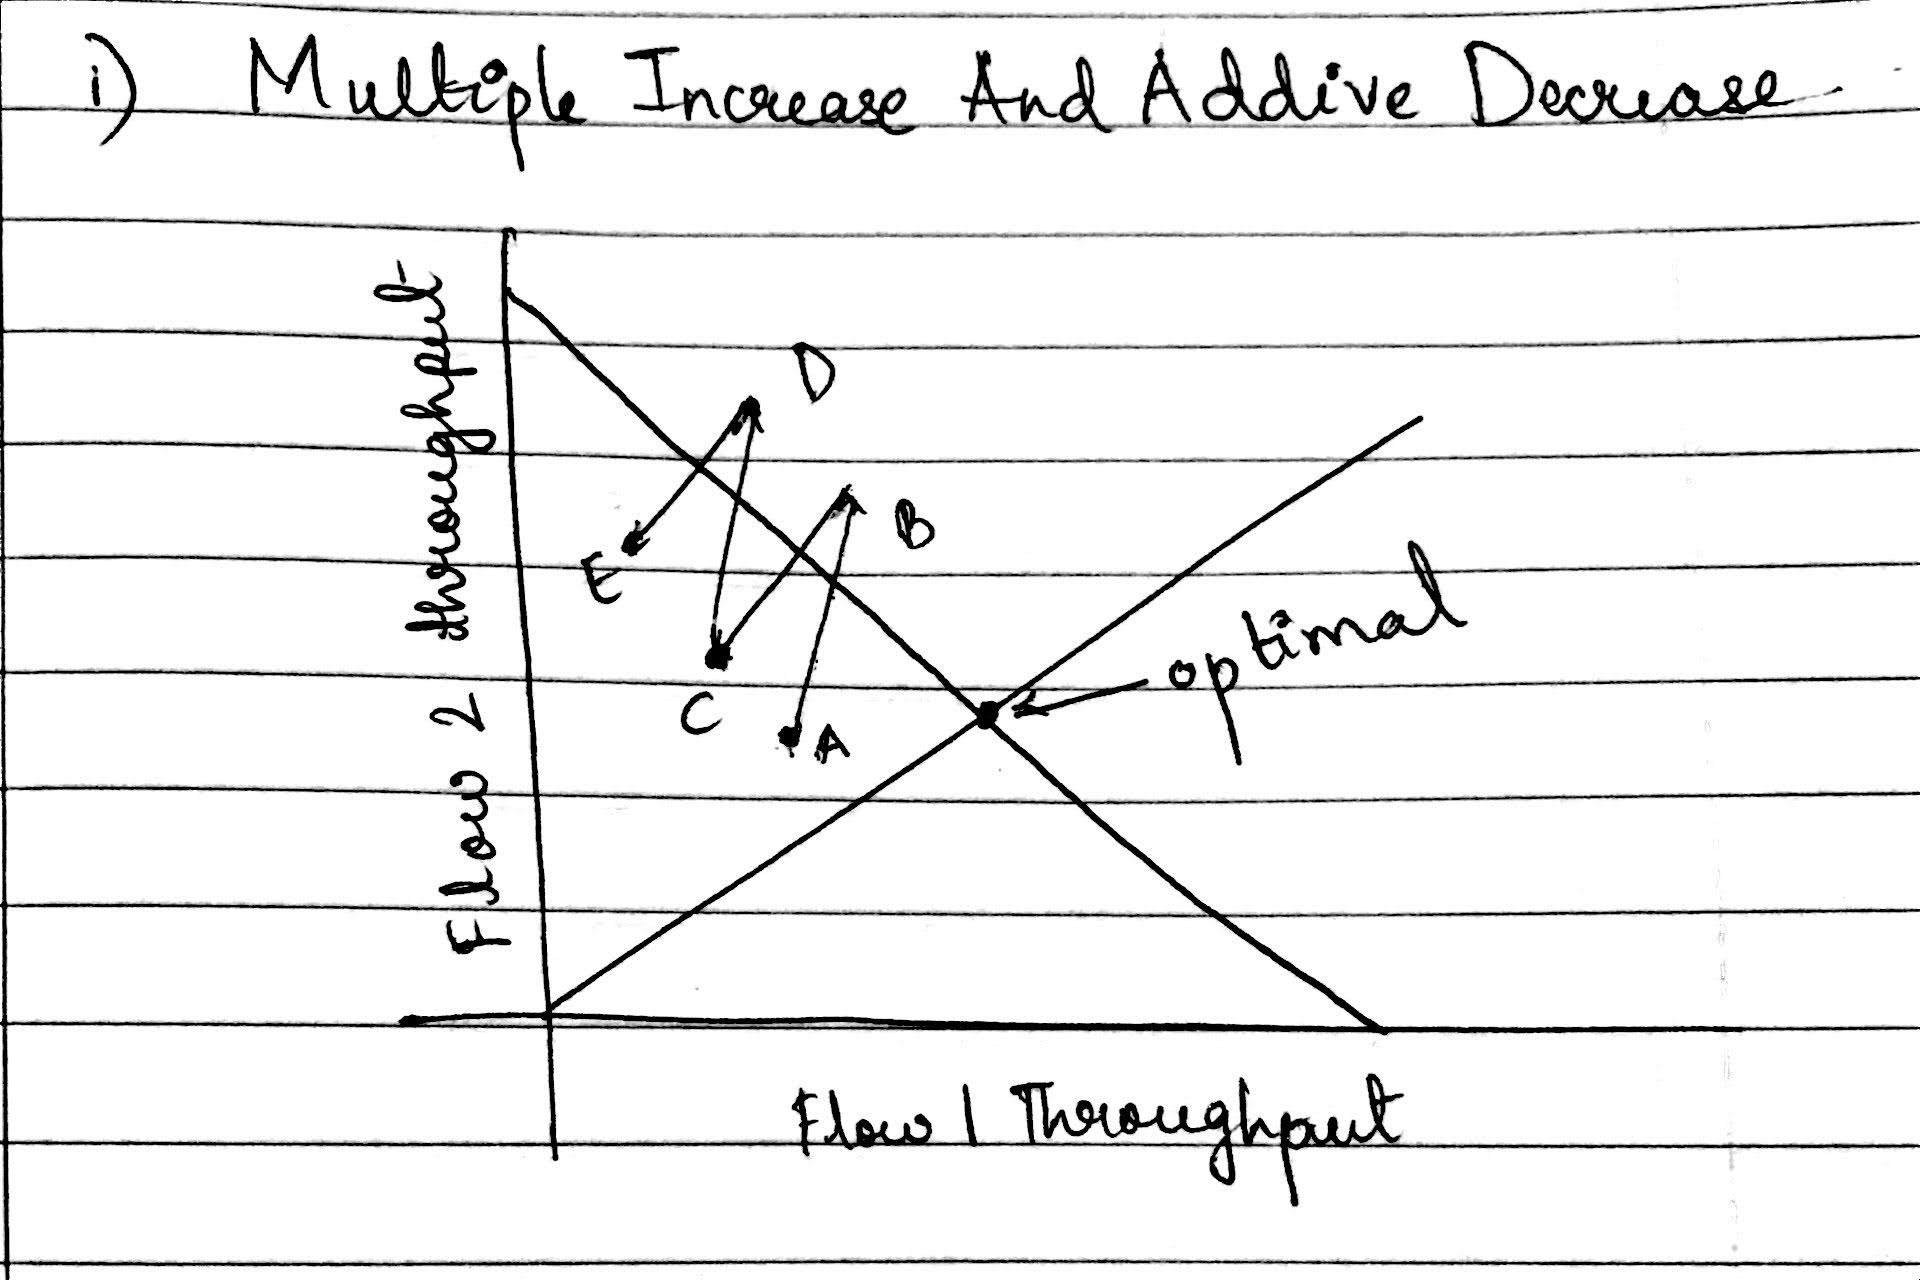 i) Multiple Increase And Addive Decrease
Flow 2 throughput
D
B
E
optimal
C
A
Flow 1 Throughput